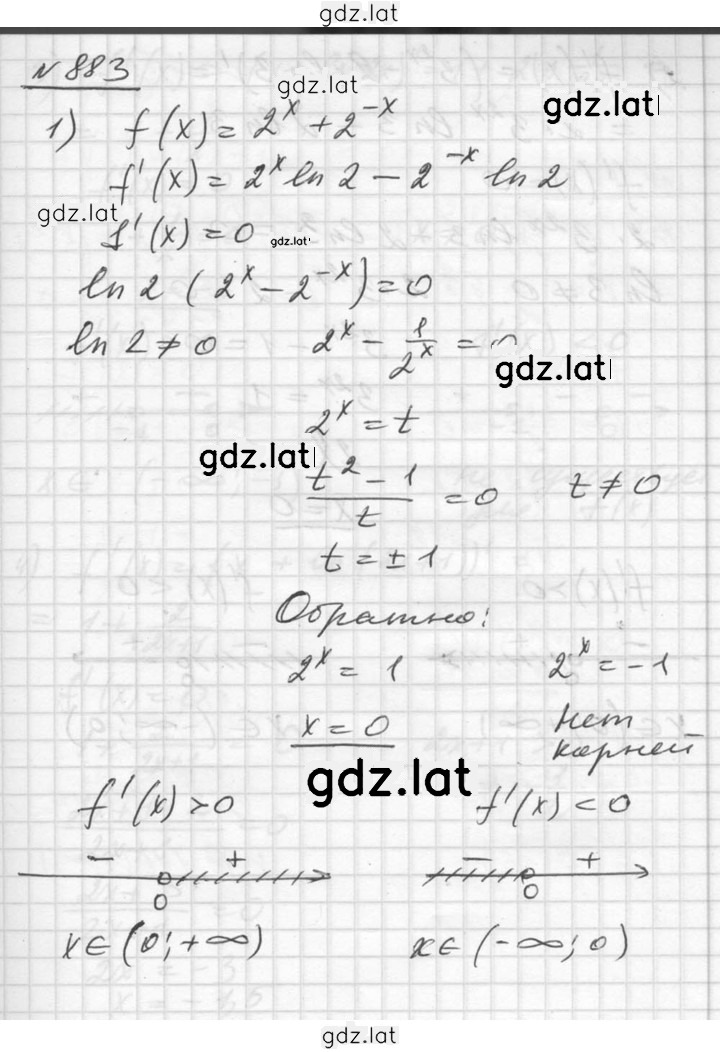 gdz.lat
№883
gdz.lat
gdz.lat
1) f(x) = 2^x + 2^{-x}
f'(x) = 2^x ln 2 - 2^{-x} ln 2
gdz.lat
f'(x) = 0
gdz.lat
ln 2 (2^x - 2^{-x}) = 0
ln 2 ≠ 0 2^x - 1/2^x = 0
gdz.lat
2^x = t
gdz.lat
(t^2 - 1)/t = 0 t ≠ 0
t = ± 1
Обратно:
2^x = 1 2^x = -1
x = 0 Нет
корней
gdz.lat
f'(x) > 0 f'(x) < 0
- + - +
0 0
x ∈ (0; +∞) x ∈ (-∞; 0)
gdz.lat